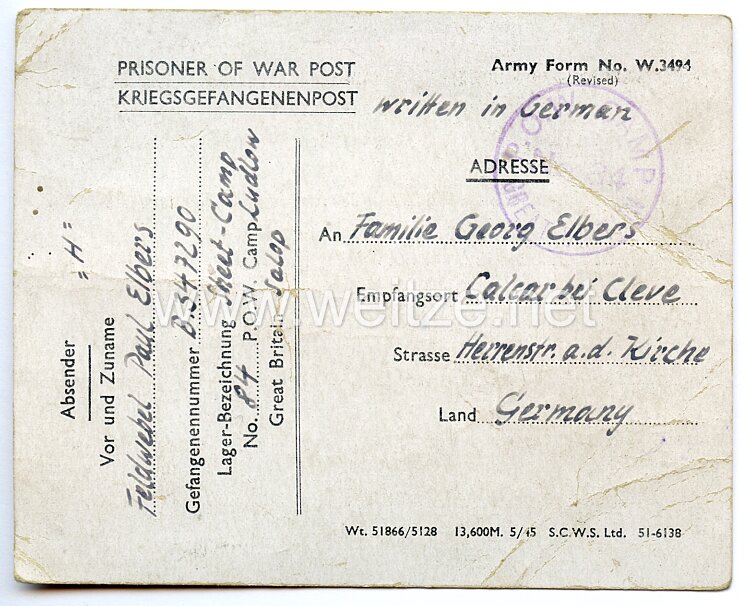 PRISONER OF WAR POST
KRIEGSGEFANGENENPOST
Army Form No. W.3494
(Revised)
written in German
ADRESSE
An Familie Georg Elbers
Empfangsort Calcar bei Cleve
Strasse Herrenstr. a.d. Kirche
Land Germany
Wt. 51866/5128 13,600M. 5/45 S.C.W.S. Ltd. 51-6138
=H=
Absender
Vor und Zuname
Feldwebel Paul Elbers
Gefangenennummer B 347290
Lager-Bezeichnung Sheet-Camp
No. 84 P.O.W. Camp Ludlow
Great Britain Salop
www.weitze.net